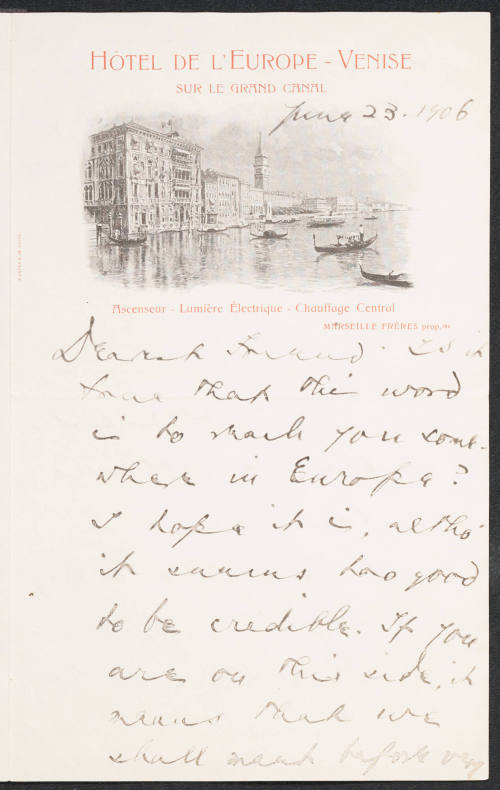 HÔTEL DE L'EUROPE - VENISE
SUR LE GRAND CANAL
June 23. 1906
Ascenseur - Lumière Électrique - Chauffage Central
MARSEILLE FRÈRES prop.res
Dearest Friend. Is it
true that this word
is to reach you some-
where in Europe?
I hope it is, altho'
it seems too good
to be credible. If you
are on this side, it
means that we
shall meet before very